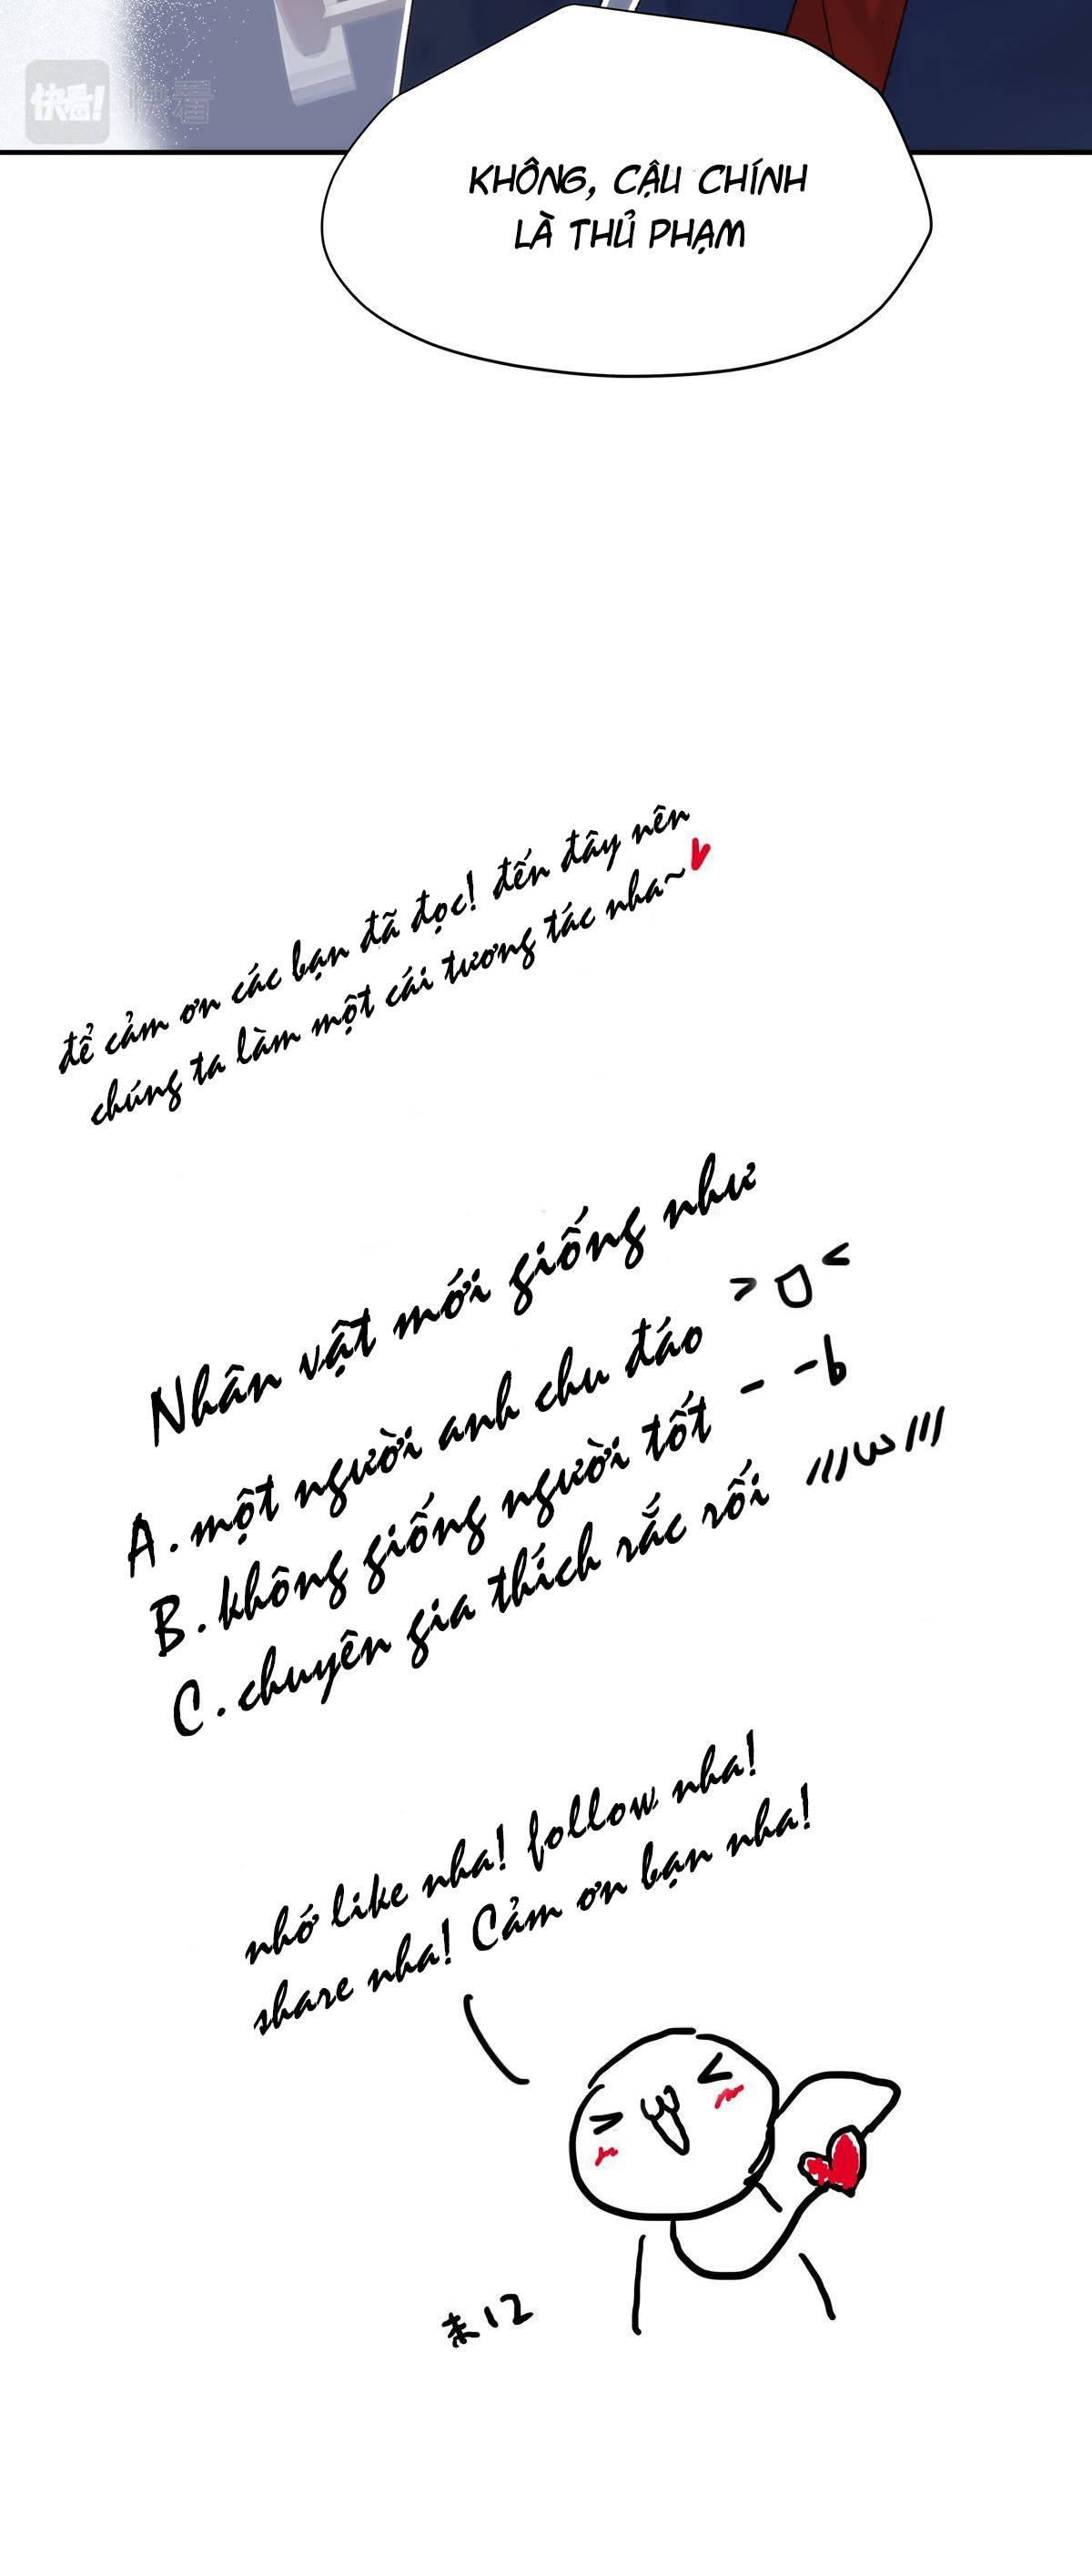 快看! 快看
KHÔNG, CẬU CHÍNH
LÀ THỦ PHẠM
để cảm ơn các bạn đã đọc! đến đây nên
chúng ta làm một cái tương tác nha~
Nhân vật mới giống như
A. một người anh chu đáo >o<
B. không giống người tốt - -b
C. chuyên gia thích rắc rối ///ω///
nhớ like nha! follow nha!
share nha! Cảm ơn bạn nha!
12